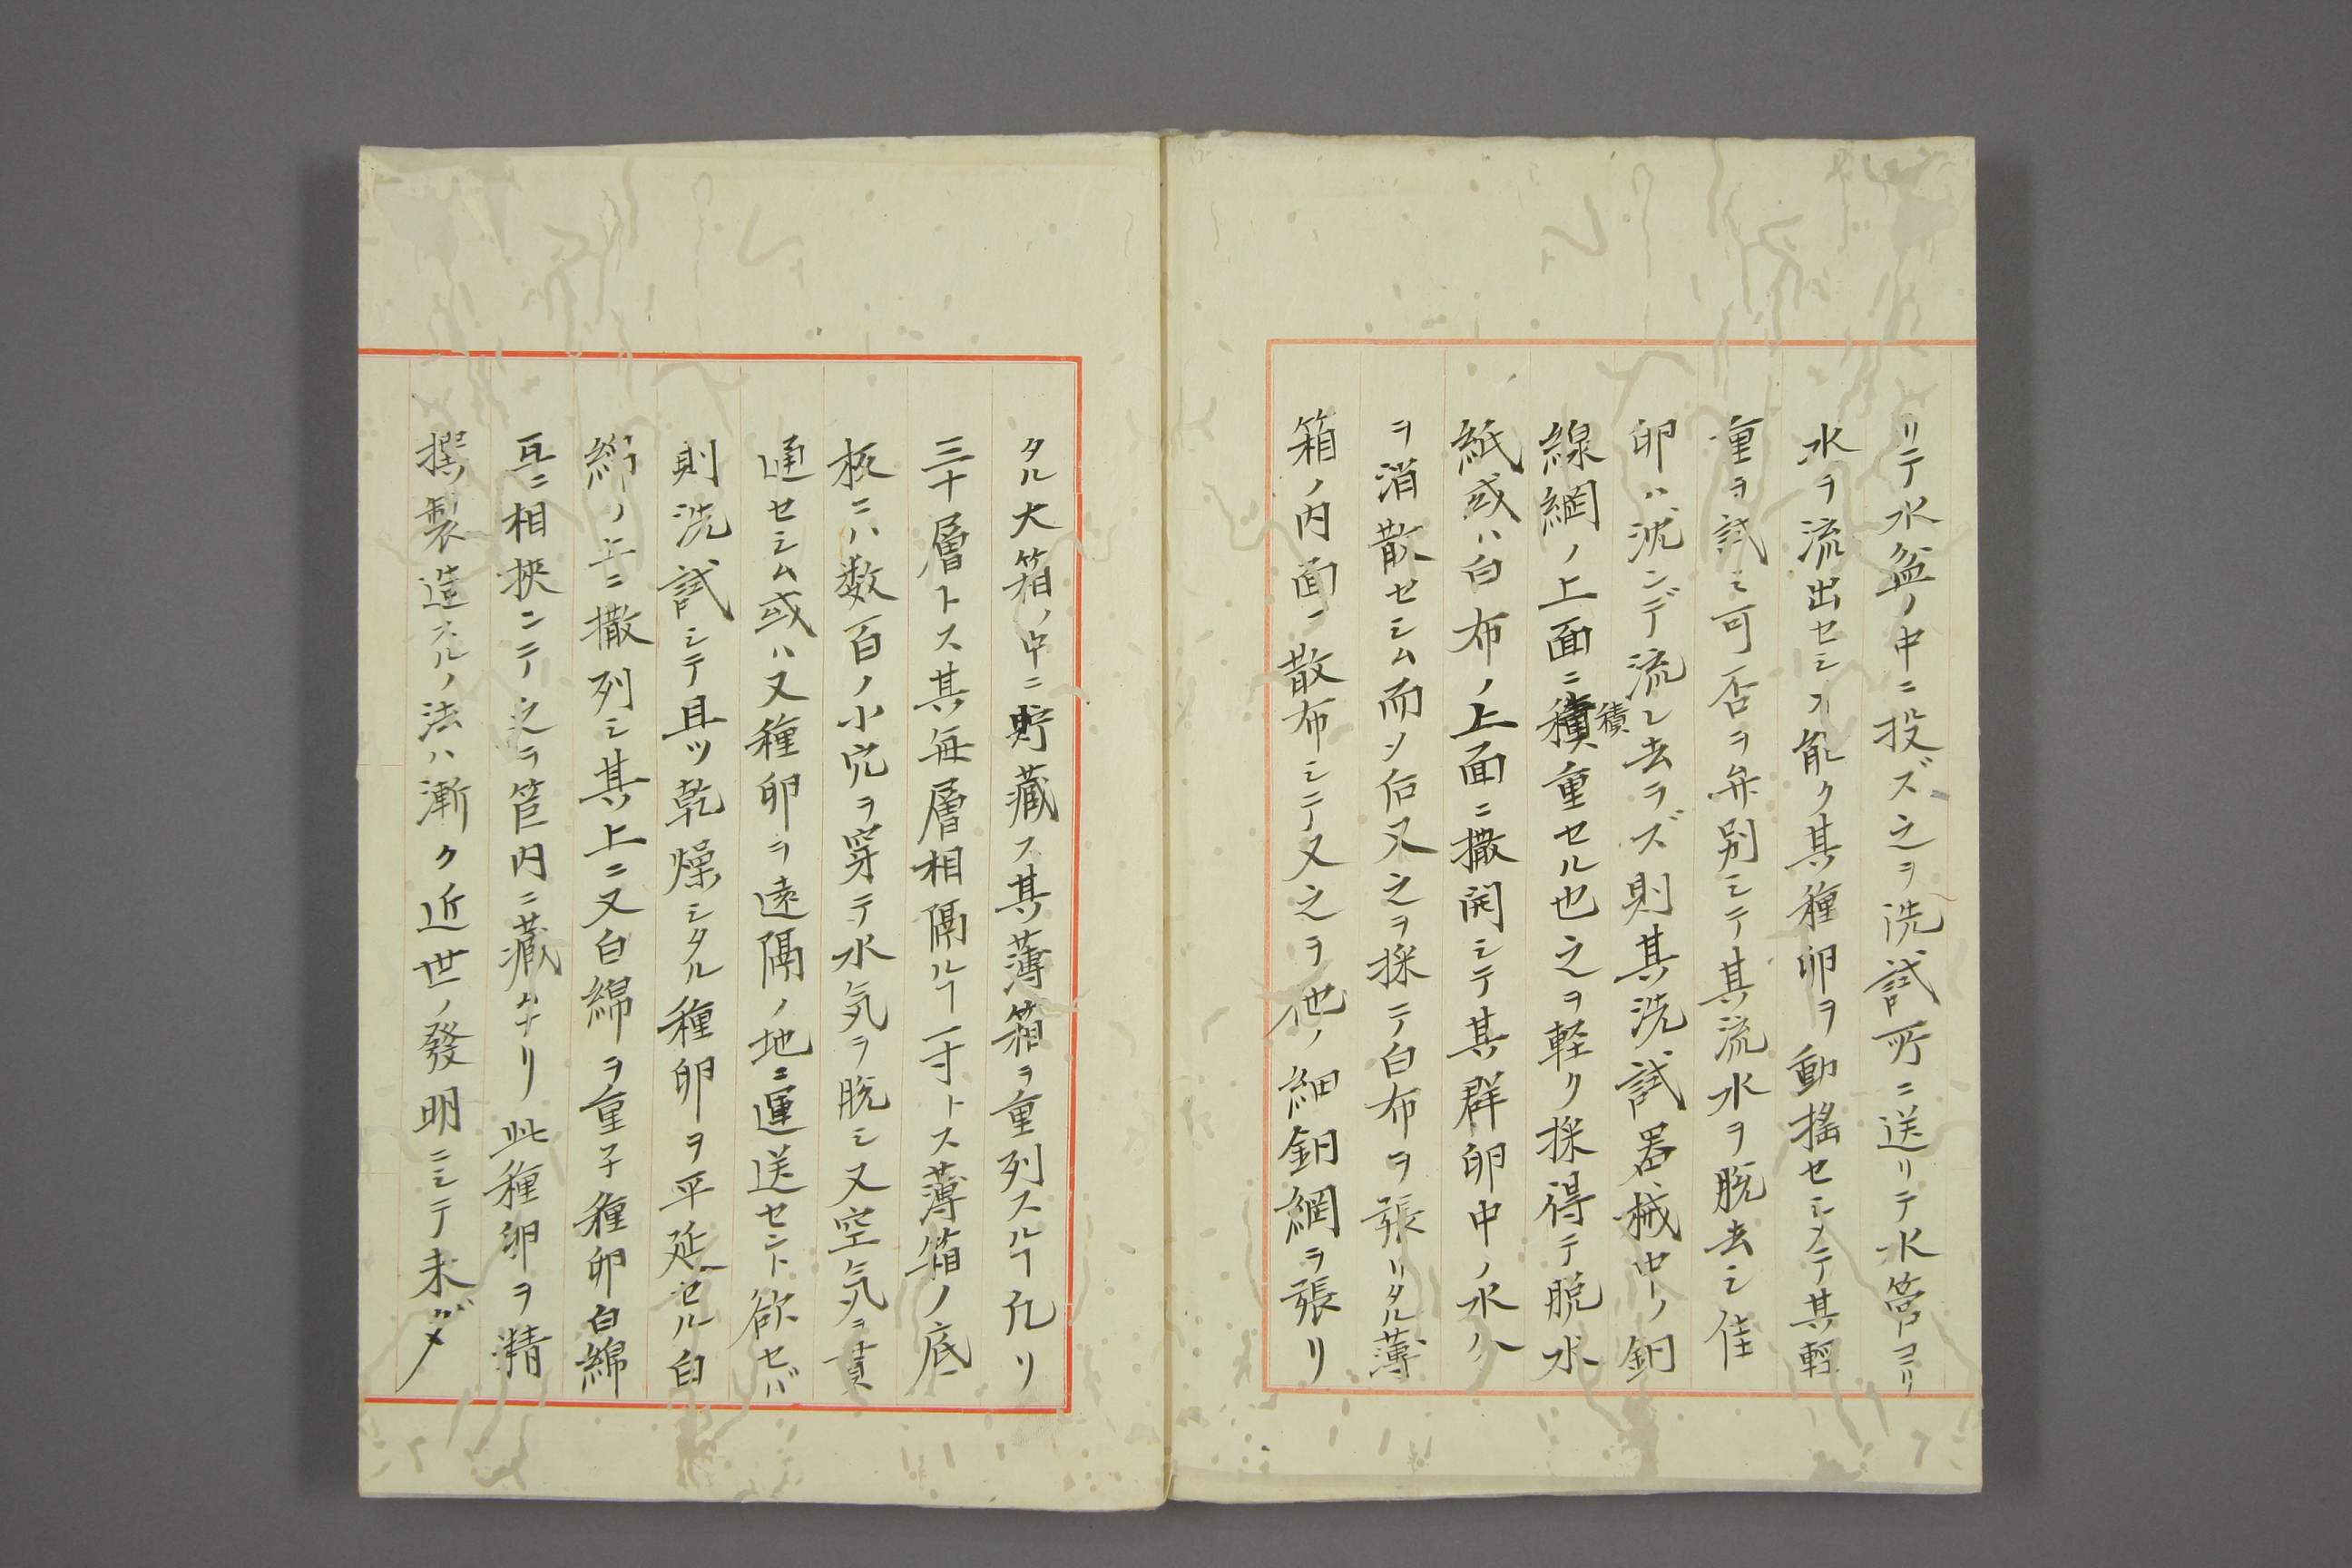 リテ水盆ノ中ニ投ズ之ヲ洗試所ニ送リテ水管ヨリ
水ヲ流出セシメ能ク其種卵ヲ動搖セシメテ其輕
重ヲ試ミ可否ヲ弁別シテ其流水ヲ脱去シ佳
卵ハ沈ンデ流レ去ラズ則其洗試器械中ノ銅
線網ノ上面ニ積重セル也之ヲ軽ク採得テ脱水
積
紙或ハ白布ノ上面ニ撒開シテ其群卵中ノ水ハ
ヲ消散セシム而ソ后又之ヲ採テ白布ヲ張リタル薄
箱ノ内面ニ散布シテ又之ヲ他ノ細銅網ヲ張リ
タル大箱ノ中ニ貯藏ス其薄箱ヲ重列スルヿ凡リ
三十層トス其每層相隔ルヿ一寸トス薄箱ノ底
板ニハ数百ノ小穴ヲ穿テ水気ヲ脱シ又空気ヲ貫
通セシム或ハ又種卵ヲ遠隔ノ地ニ運送セント欲セバ
則洗試シテ且ツ乾燥シタル種卵ヲ平延セル白
綿ノ上ニ撒列シ其上ニ又白綿ヲ重子種卵白綿
互ニ相挾ンテ之ヲ筐内ニ藏ムナリ此種卵ヲ精
撰製造スルノ法ハ漸ク近世ノ發明ニシテ未ダ